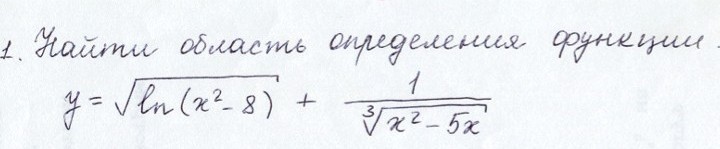 1. Найти область определения функции.
y = √ln(x² - 8) + 1/∛x² - 5x